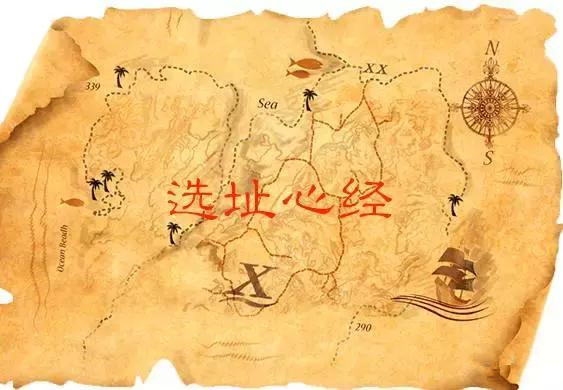 N
XX
339
Sea
S
选址心经
Ocean Beadh
X
290